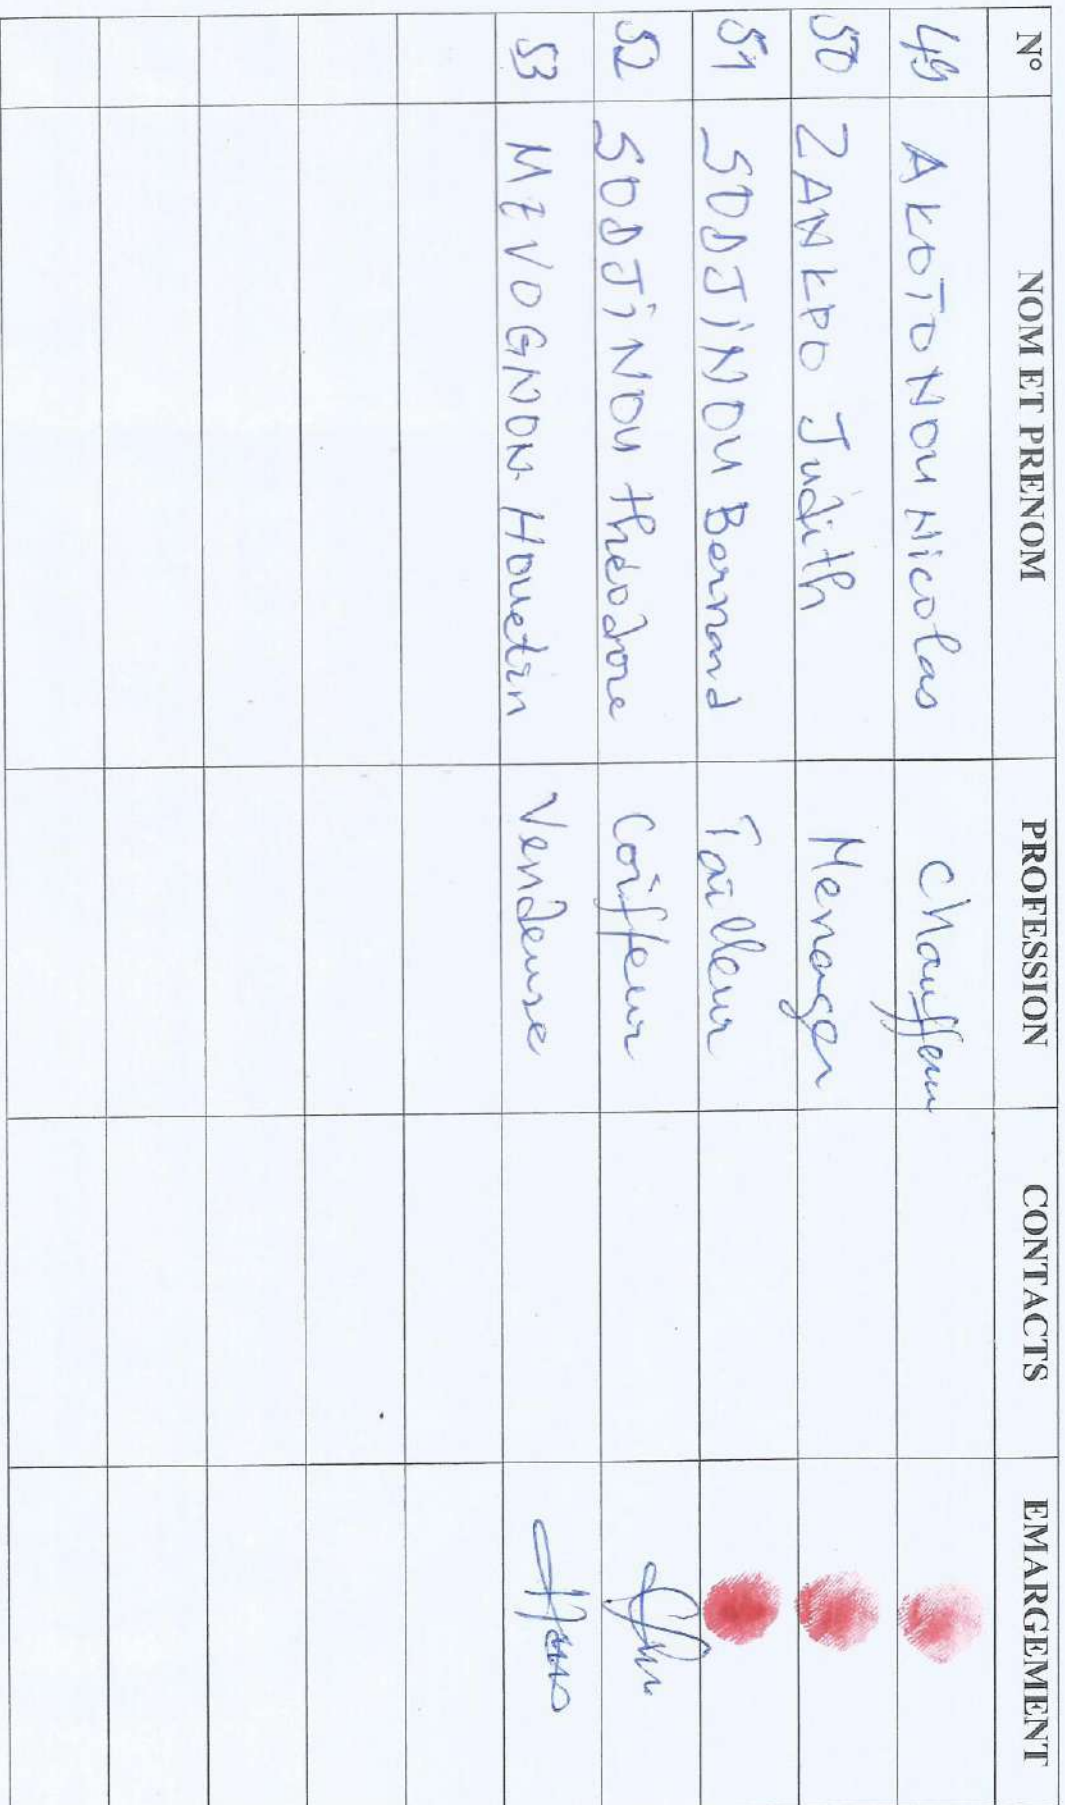 N° NOM ET PRENOM PROFESSION CONTACTS EMARGEMENT
49 AKOTONOU Nicolas chauffeur
50 ZANKPO Judith Menager
51 SODJINOU Bernard Tailleur
52 SODJINOU théodore Coiffeur
53 MEVOGNON Houetin Vendeuse